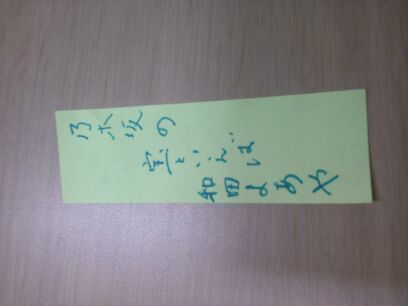 乃木坂の
宝といえば
和田まあや